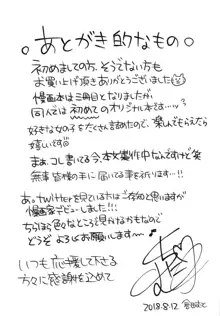 。あとがき的なもの。
初めましての方、そうでない方も
お買い上げ頂きありがとうございました
漫画本は三冊目となりましたが、
同人では初めてのオリジナル本です…ッ
好きな女の子をたくさん詰めたので、楽しんでもらえたら
嬉しいです
まぁ、コレ書いてる今、本文製作中なんですけど笑
無事皆様の手に届いてる事を祈ります…!!
あ、twitterを見ている方はご存知と思いますが
漫画家デビューしました!!!
ちょろちょろ色々なところで見かけるものなので
どうぞよろしくお願いします〜♪
いつも応援して下さる
方々に感謝を込めて
2018.8.12